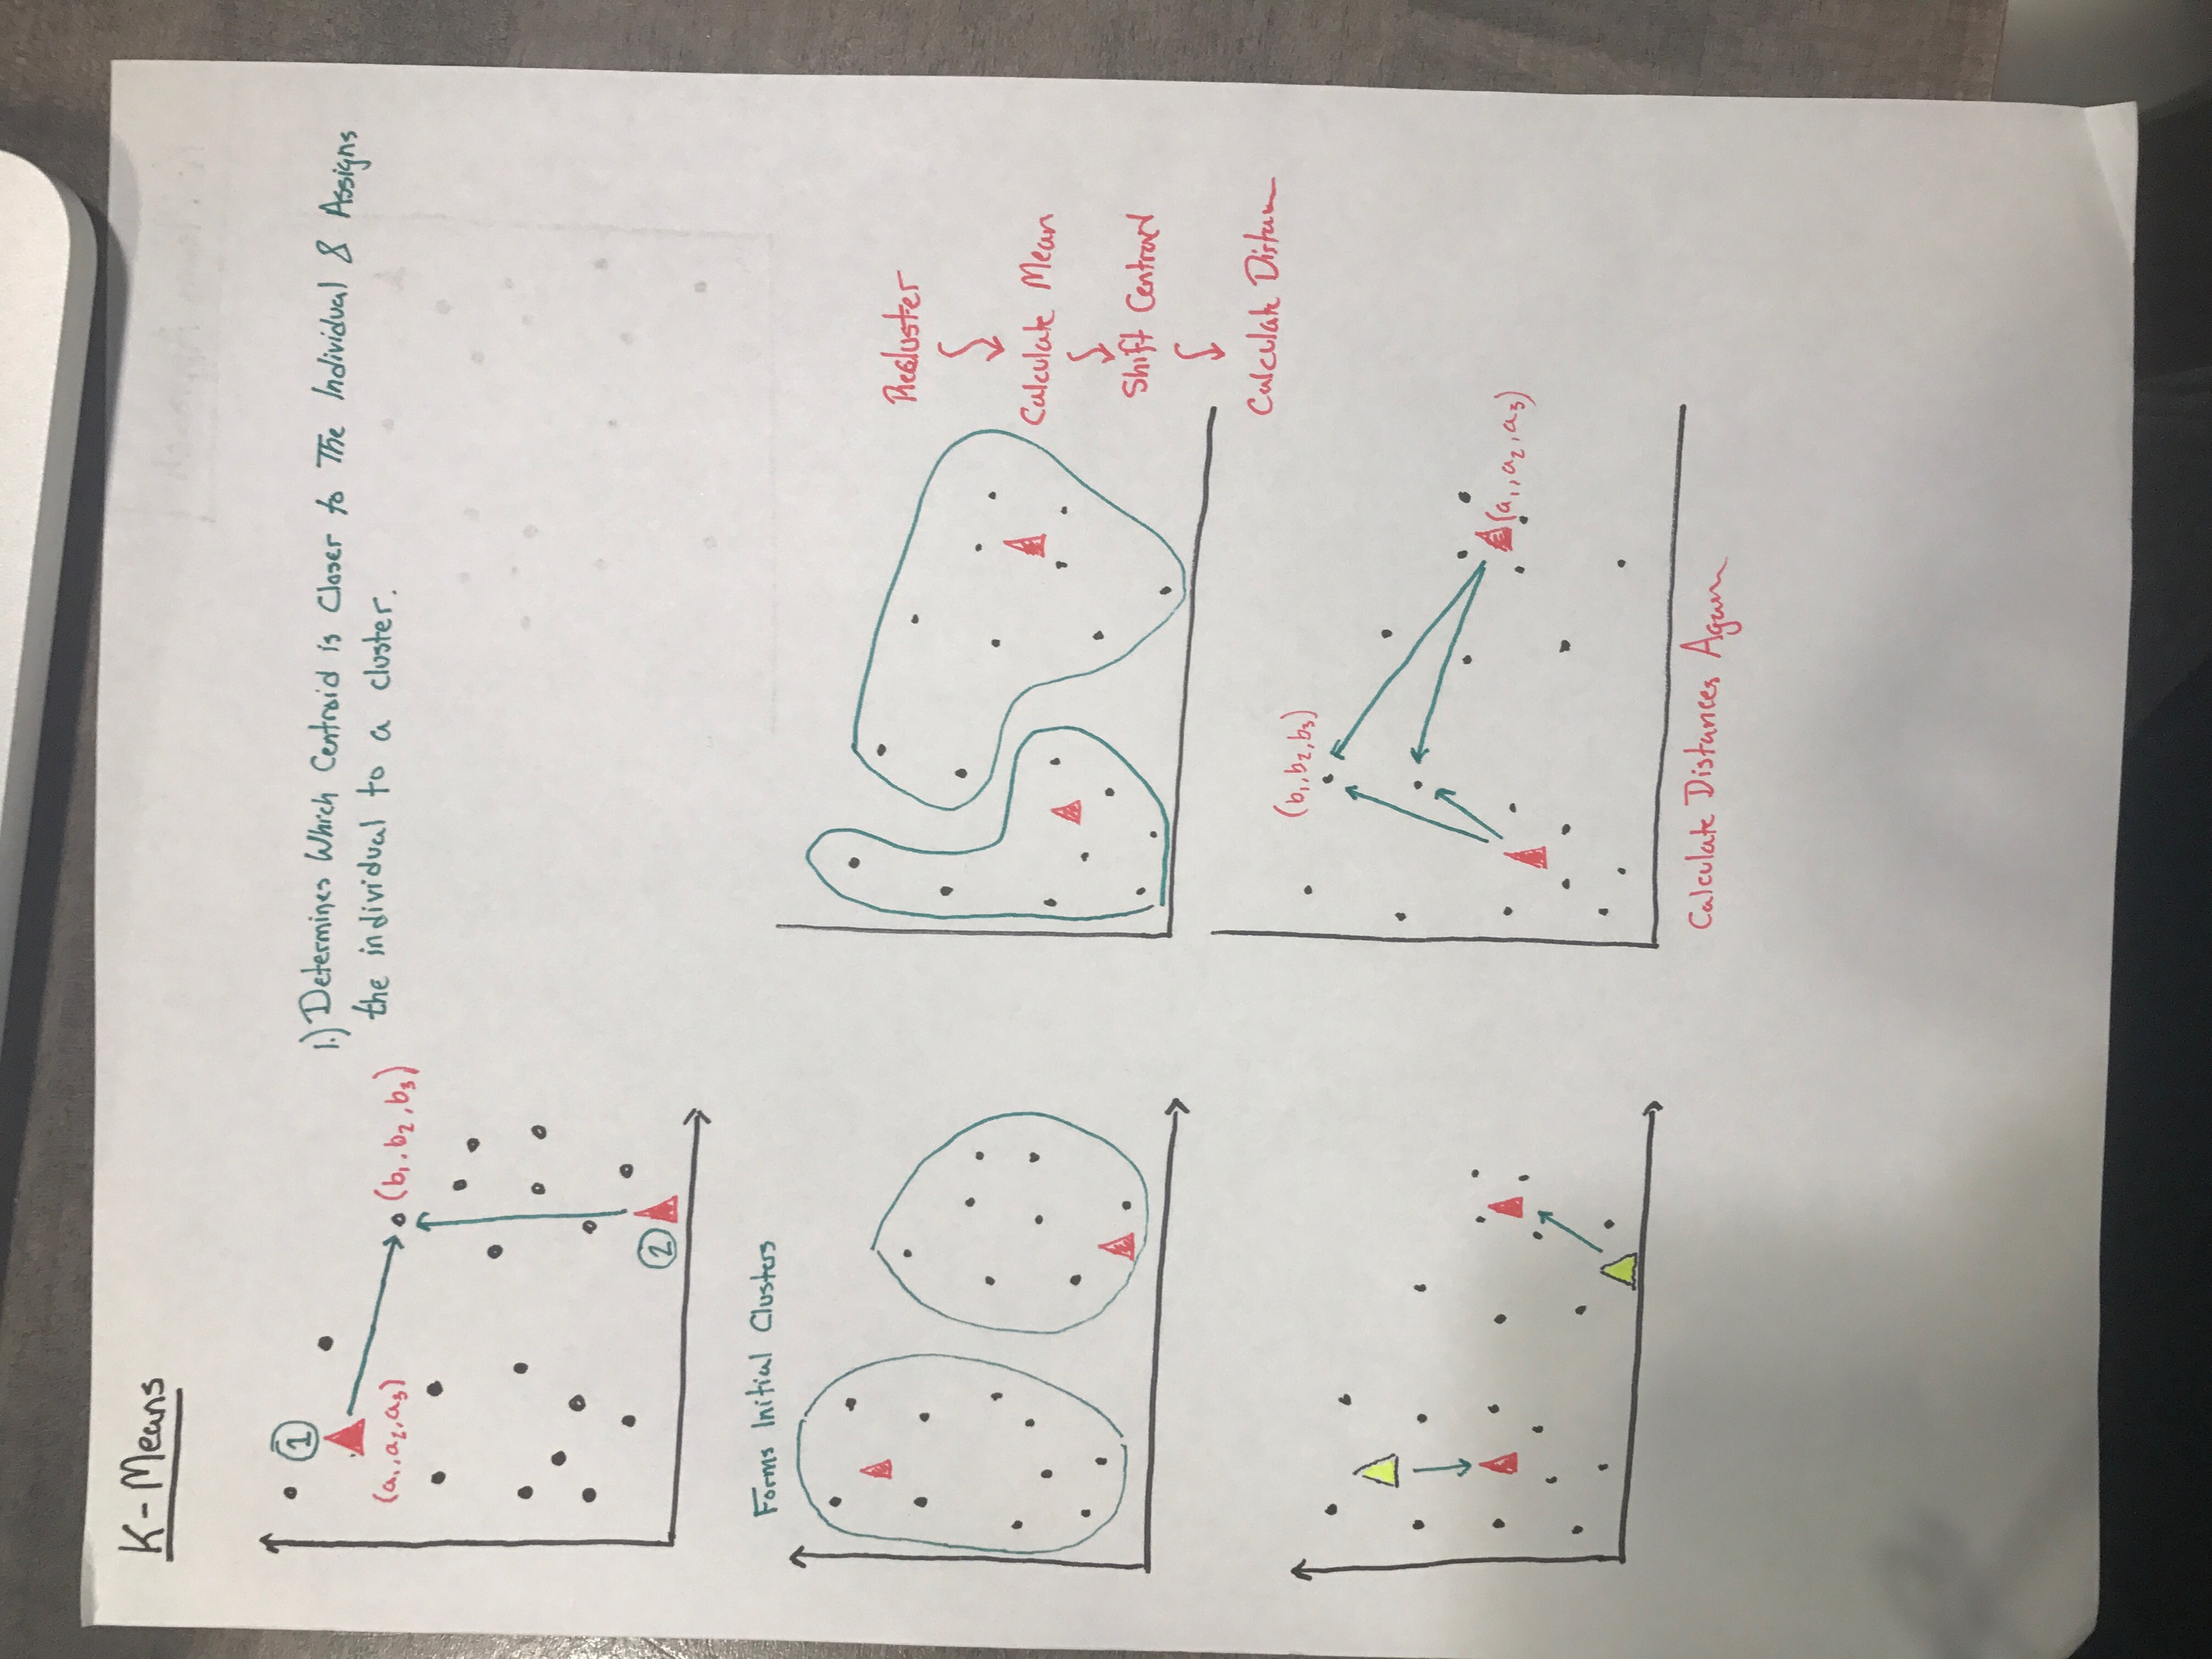 K-Means
1
(a₁,a₂,a₃)
(b₁,b₂,b₃)
2
1.) Determines Which Centroid is Closer to The Individual & Assigns
the individual to a cluster.
Forms Initial Clusters
Recluster
Calculate Mean
Shift Centroid
Calculate
(b₁,b₂,b₃)
(a₁,a₂,a₃)
Calculate Distances Again